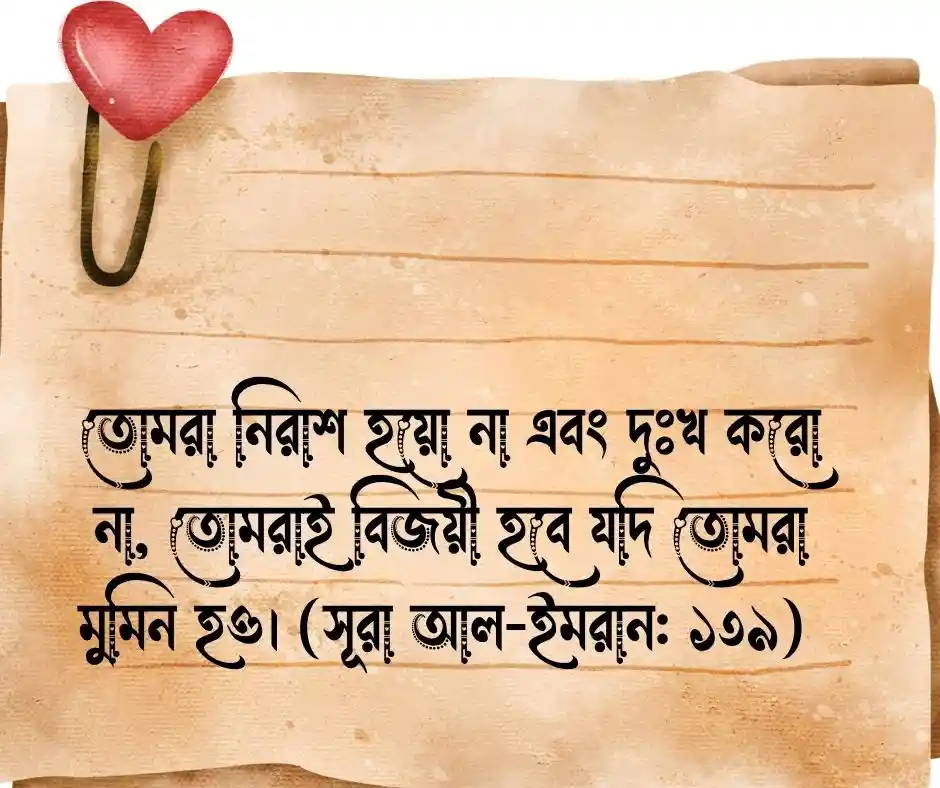 তোমরা নিরাশ হয়ো না এবং দুঃখ করো
না, তোমরাই বিজয়ী হবে যদি তোমরা
মুমিন হও। (সূরা আল-ইমরান: ১৩৯)